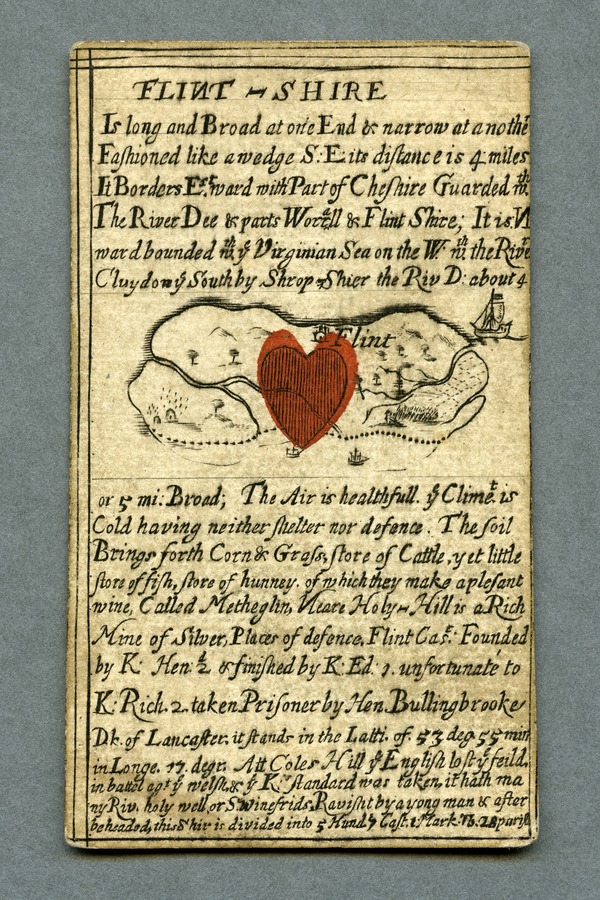 FLINT - SHIRE
Is long and Broad at one End & narrow at anothe
Fashioned like a wedge S: E its distance is 4 miles
It Borders Est. ward with Part of Cheshire Guarded wth.
The River Dee & parts & Flint Shire; It is N
ward bounded wth. ye Virginian Sea on the W. wth the Rive
Cluydon ye South by Shrop-Shier the Riv D: about 4
Flint
or 5 mi: Broad; The Air is healthfull. ye Climet. is
Cold having neither shelter nor defence. The soil
Brings forth Corn & Grass, store of Cattle, yet little
store of fish, store of hunney. of which they make a plesant
wine, Called Metheglin, Neare Holy-Hill is a Rich
Mine of Silver, Places of defence, Flint Cast: Founded
by K: Hen: 2 & finished by K: Ed: 1. unfortunate to
K: Rich. 2. taken Prisoner by Hen. Bullingbrooke
Dk. of Lancaster. it stands in the Latti. of 53 deg. 55 min
in Longe. 17. degr. Att Coles Hill ye English lost ye feild,
in battel agst ye welsh, & ye Ks. standard was taken, it hath ma
ny Riv. holy well, or St winefrids, Ravisht by a yong man & after
beheaded, this Shir is divided into 5 Hund. 7 Cast. 1 Mark. To. 28 parish